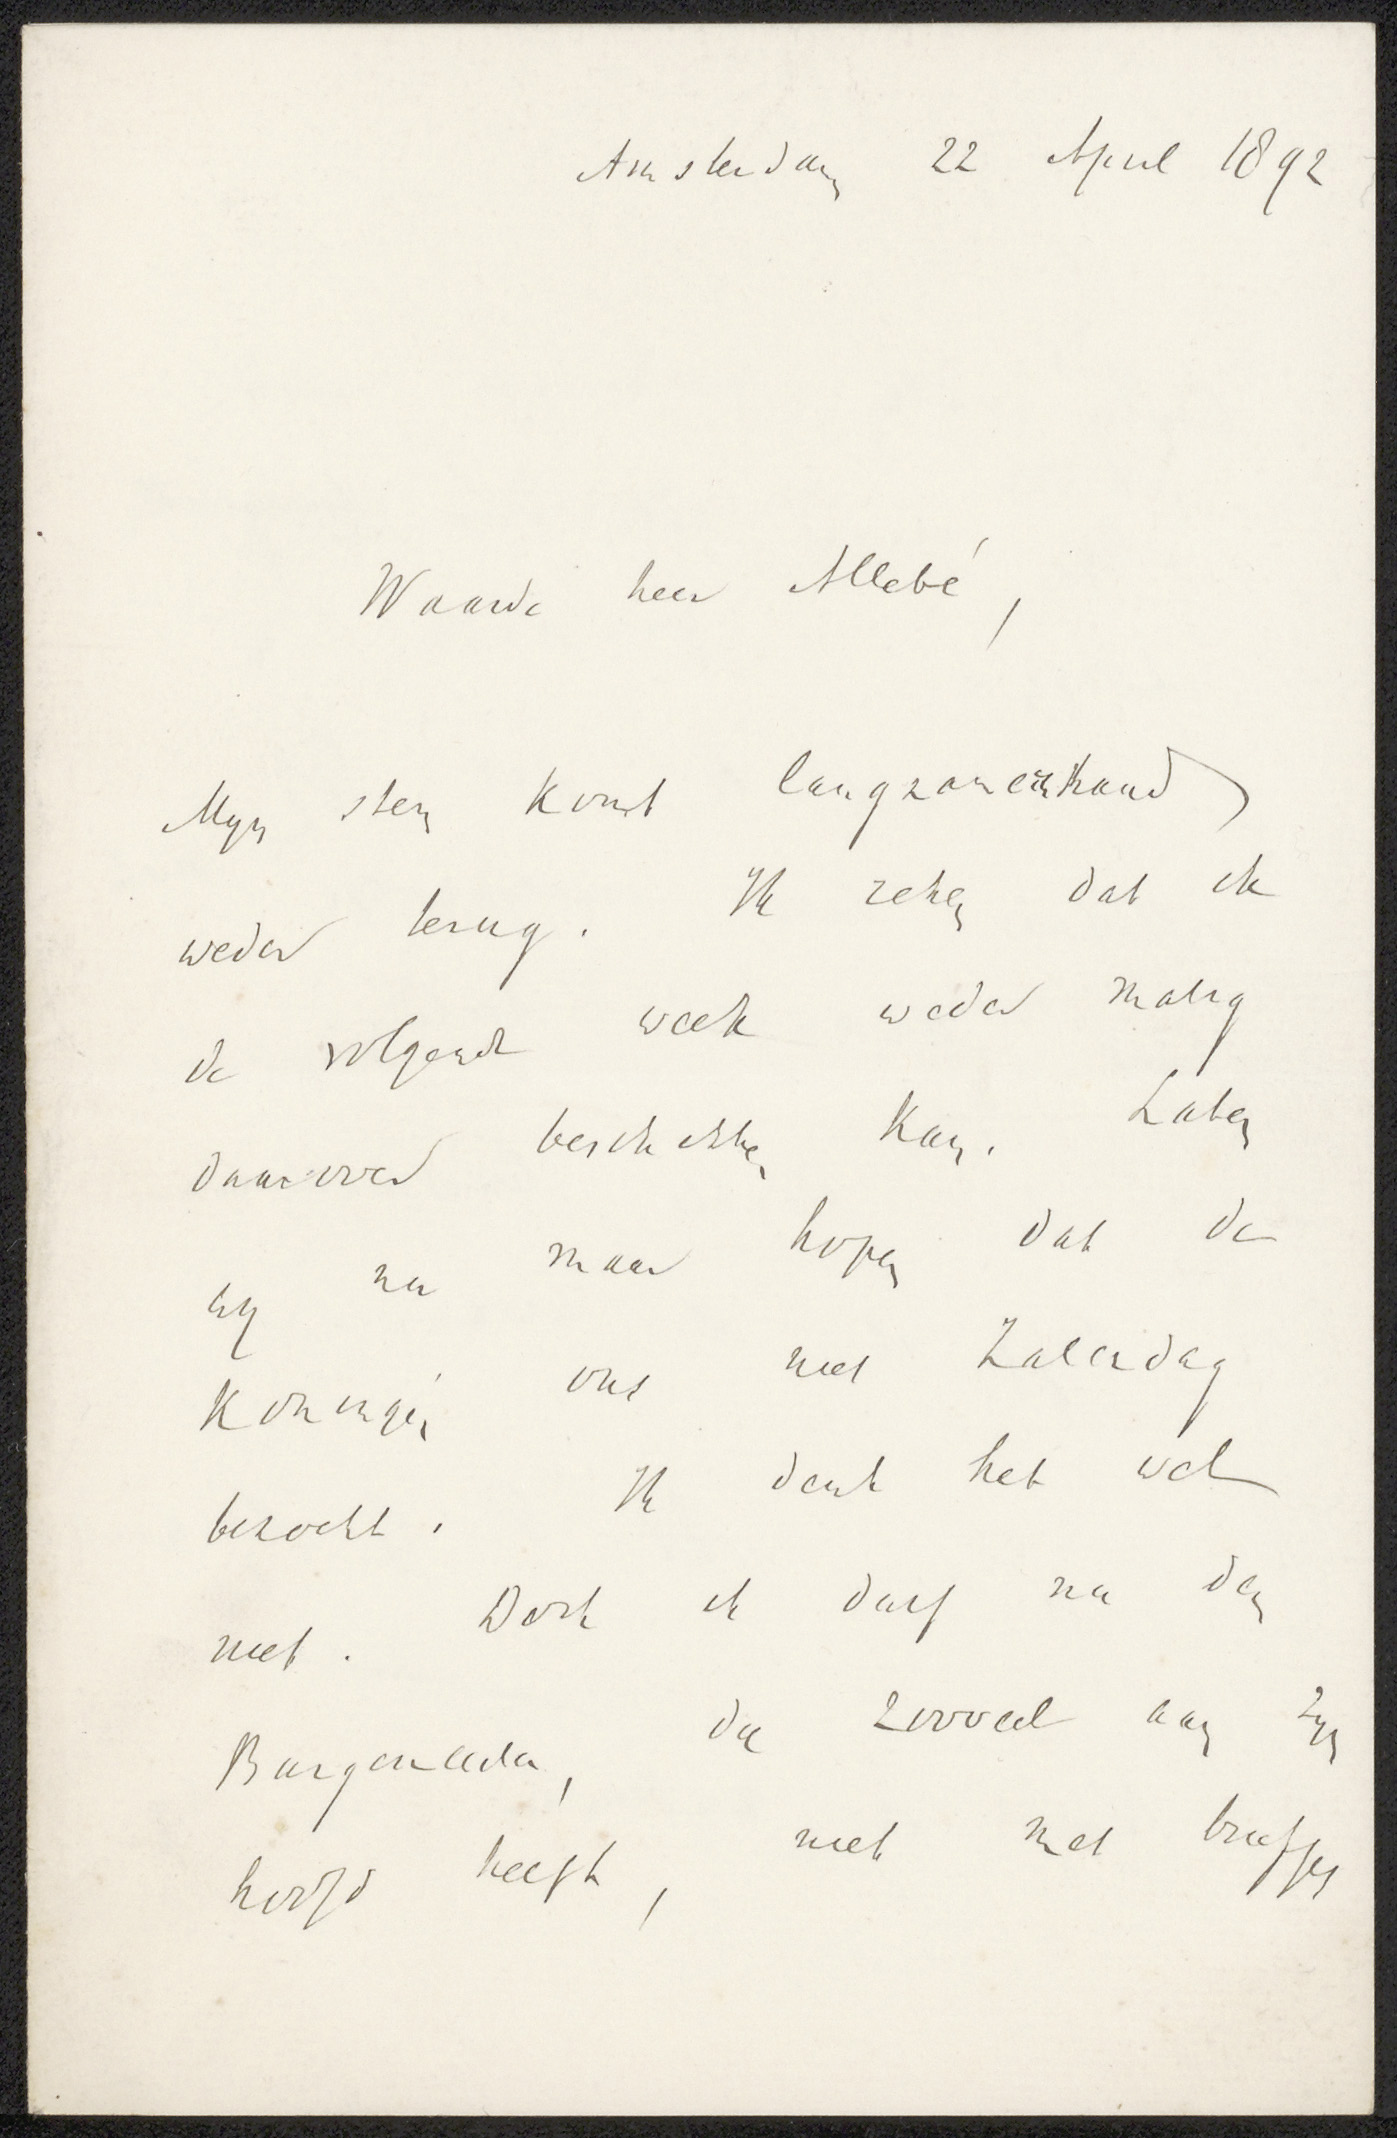 Amsterdam 22 April 1892
Waarde heer Allebé,
Myn stem komt langzamerhand
weder terug. Ik reken dat ik
de volgende week weder matig
daarover beschikken kan. Laten
wy nu maar hopen dat de
Koningin ons niet Zaterdag
bezocht. Ik denk het wel
niet. Doch ik durf nu den
Burgemeester, die zooveel aan zyn
hoofd heeft, niet met briefjes